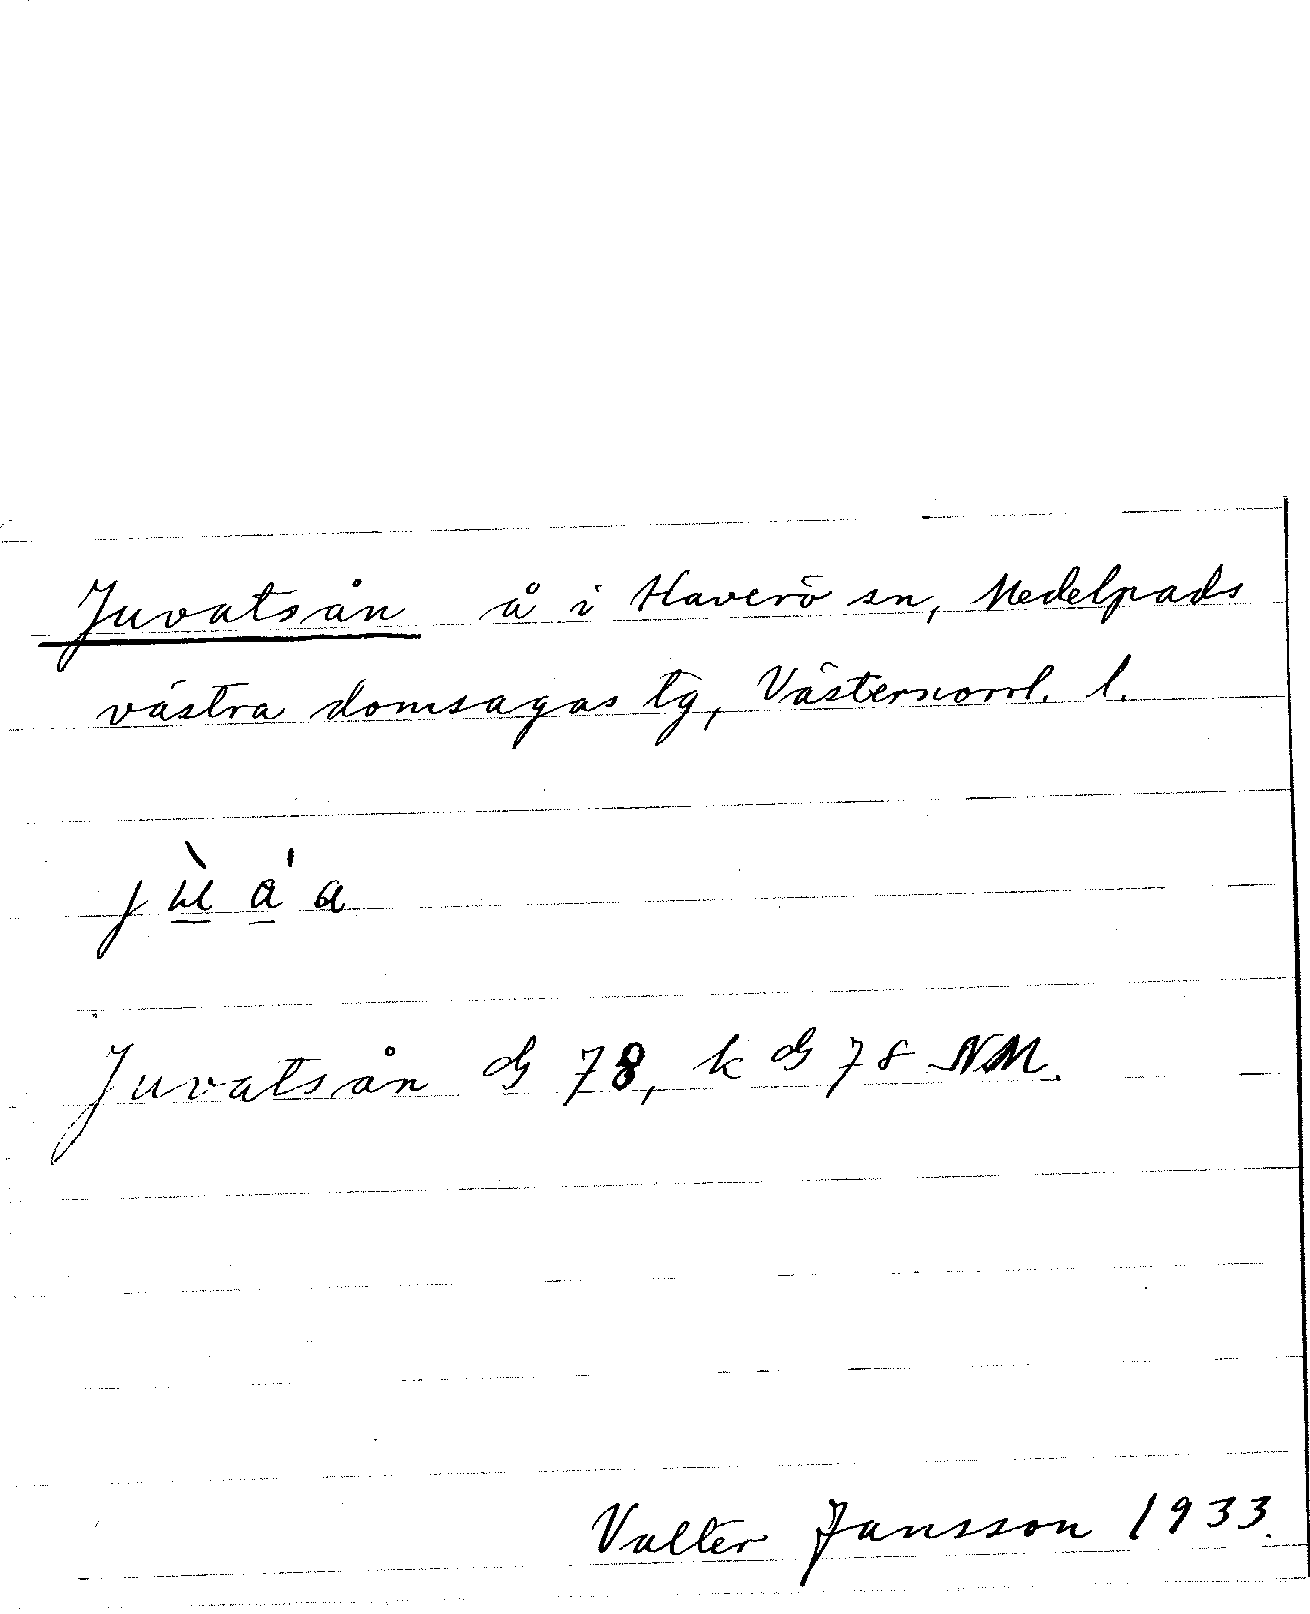 Juvatsån å i Haverö sn, Medelpads
västra domsagas tg, Västernorrl. l.
Juvatsån G 78, k G 78 NM.
Valter Jansson 1933.